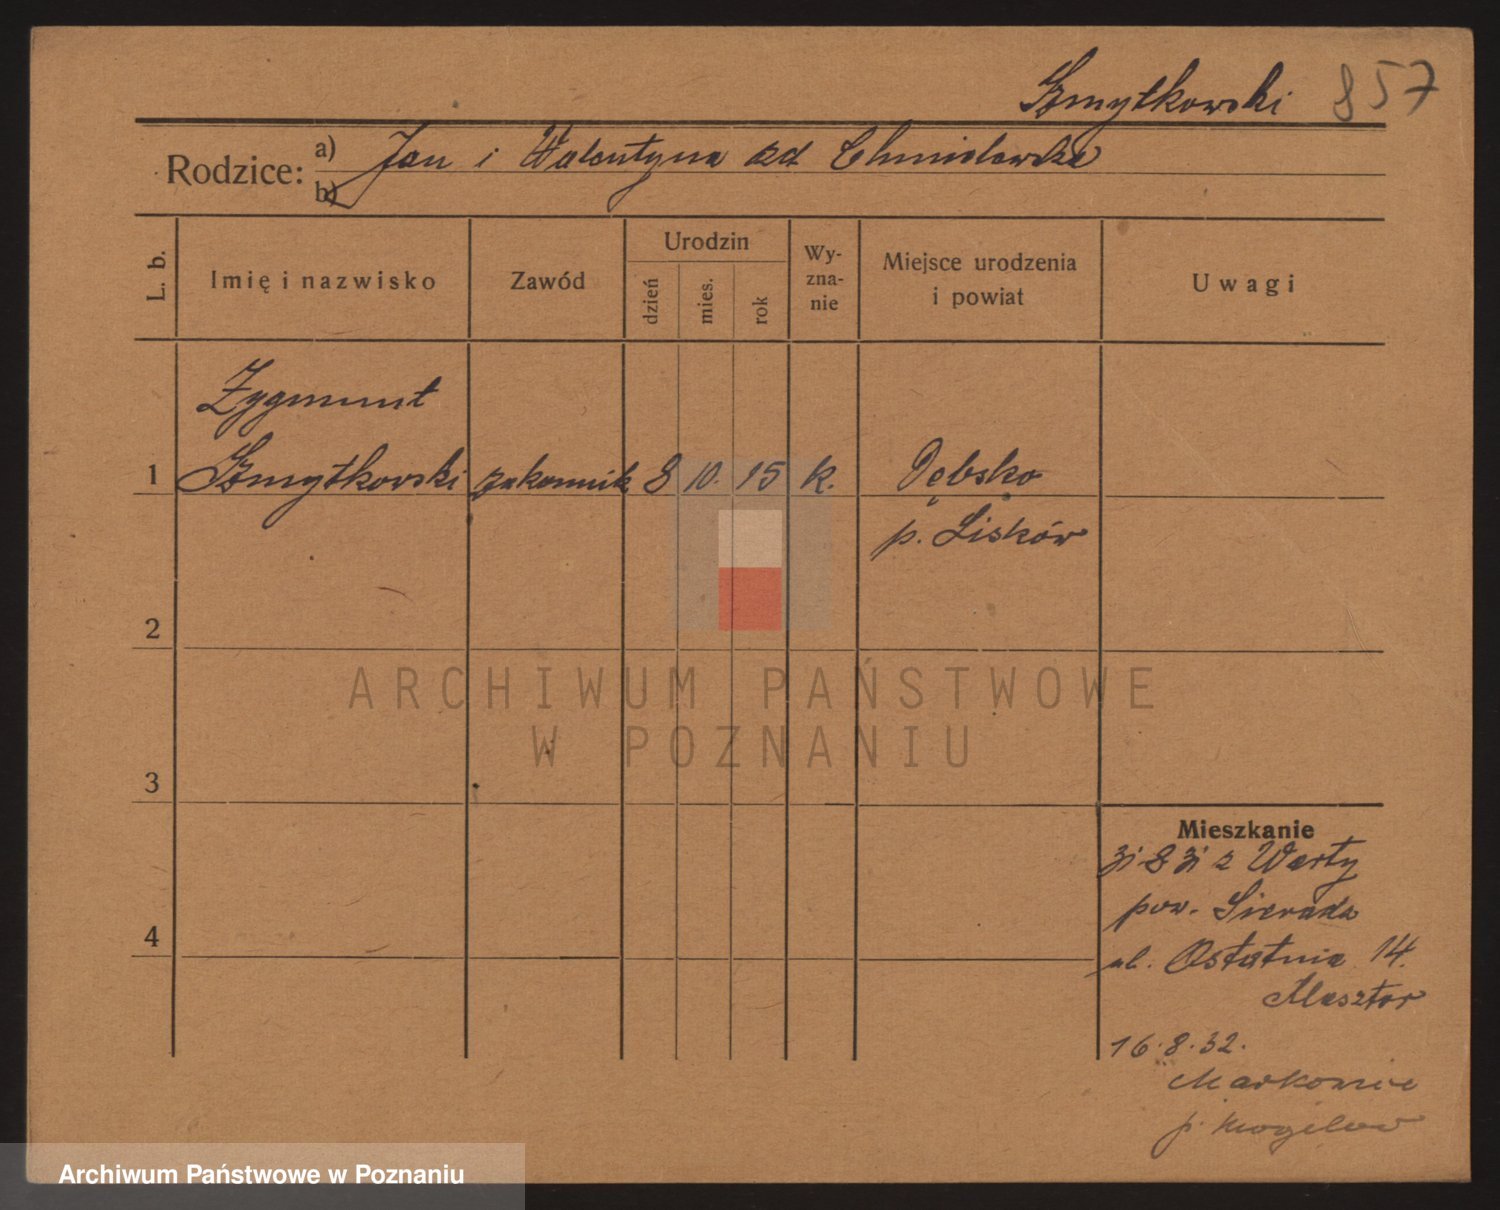 Szmytkowski 857
Rodzice: a) Jan i Walentyna zd. Chmielewska
b)
L. b.
Imię i nazwisko
Zawód
Urodzin
dzień
mies.
rok
Wy-
zna-
nie
Miejsce urodzenia
i powiat
Uwagi
Zygmunt
1 Szmytkowski zakonnik 8 10. 15 k. Dębsko
p. Lisków
2
ARCHIWUM PAŃSTWOWE
W POZNANIU
3
Mieszkanie
31·8 31 z Warty
pow. Sieradz
4
ul. Ostatnia 14.
Klasztor
16.8.32.
p. Mogilno
Archiwum Państwowe w Poznaniu